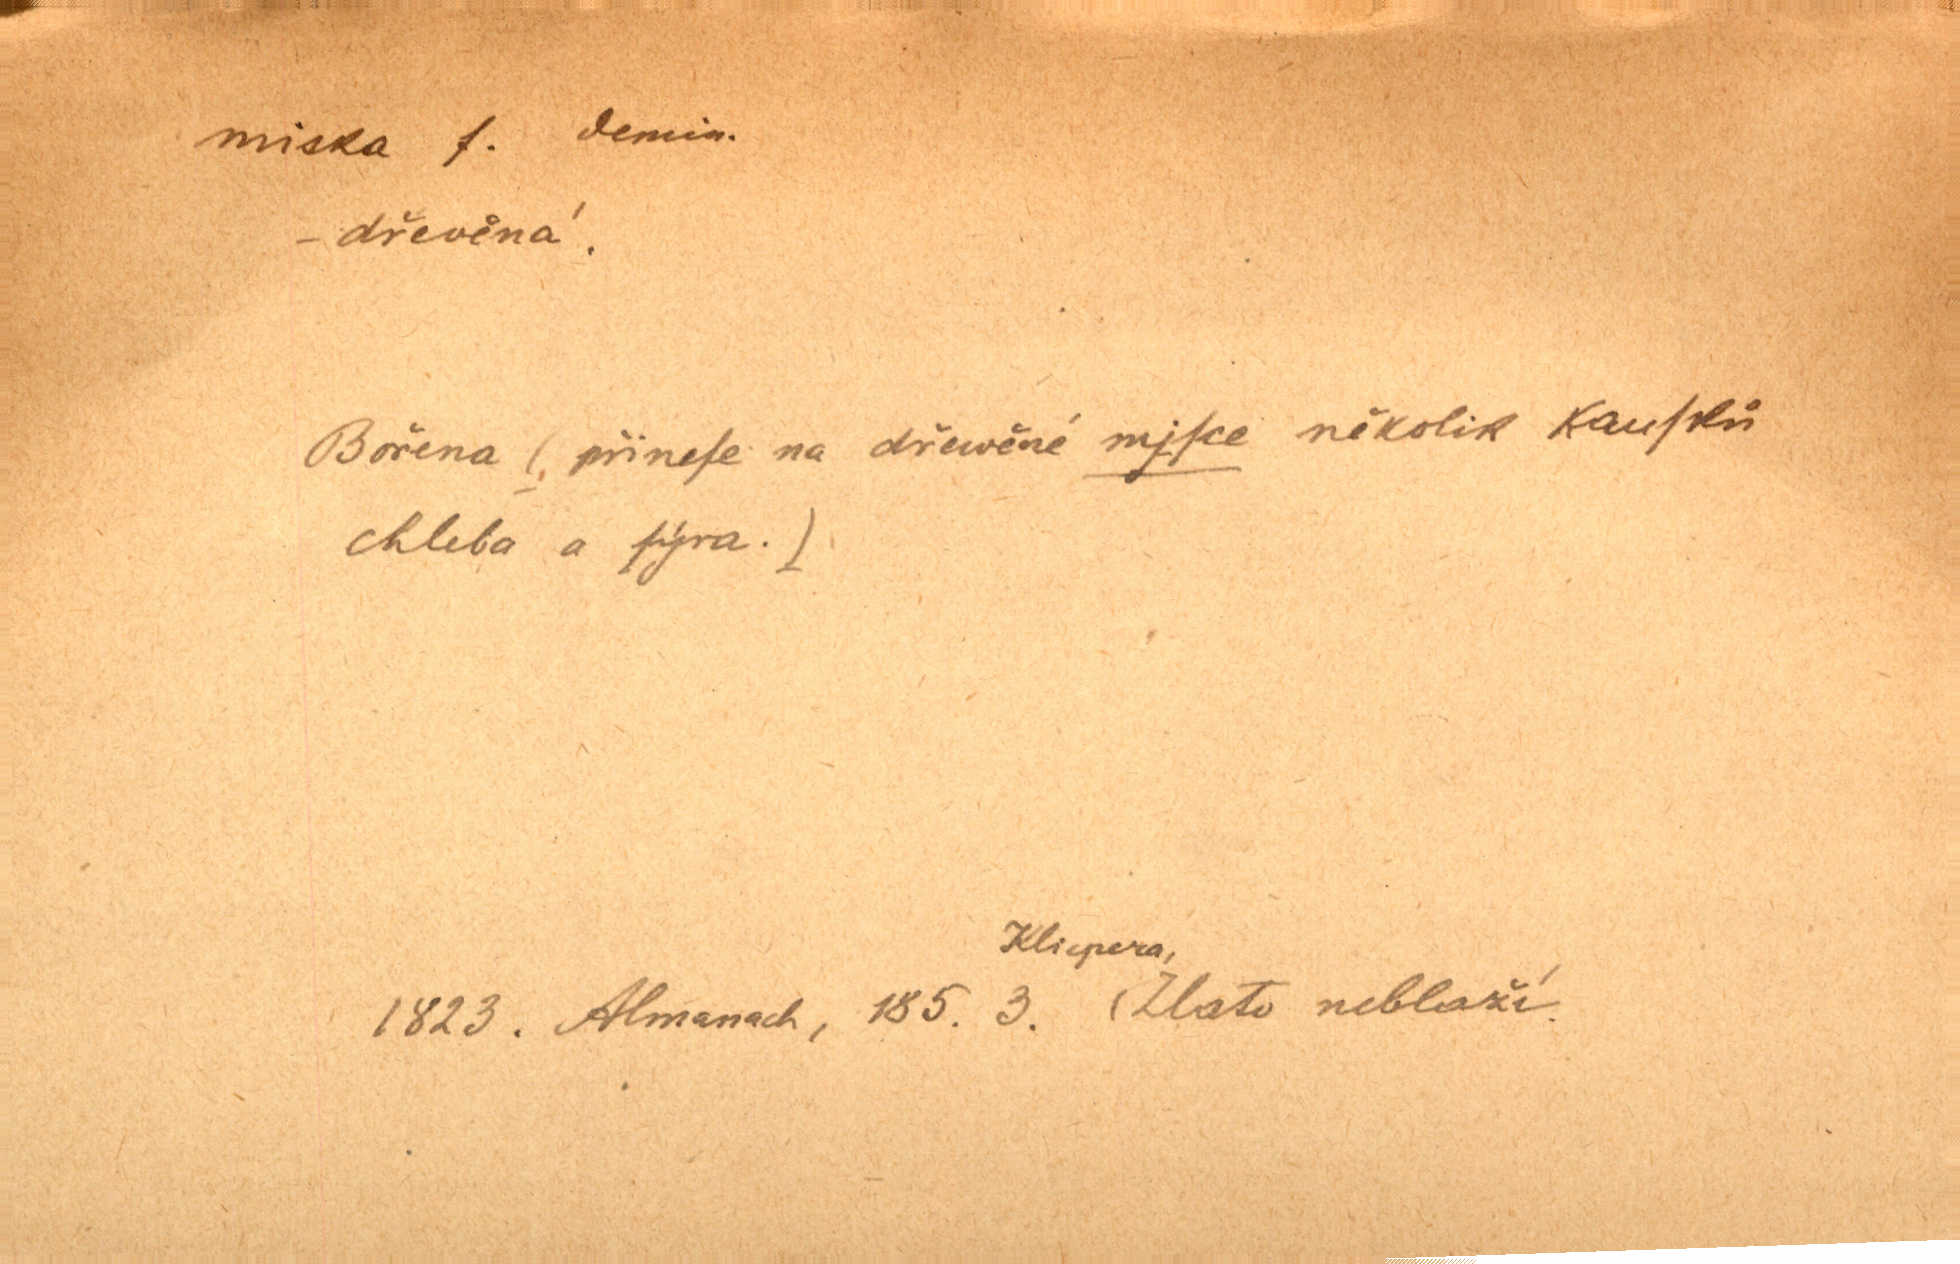 miska f. demin.
– dřevěná.
Bořena (přineſe na dřewěné mjſce několik kauſků
chleba a ſýra.)
Klicpera,
1823. Almanach, 185. 3. (Zlato neblaží.